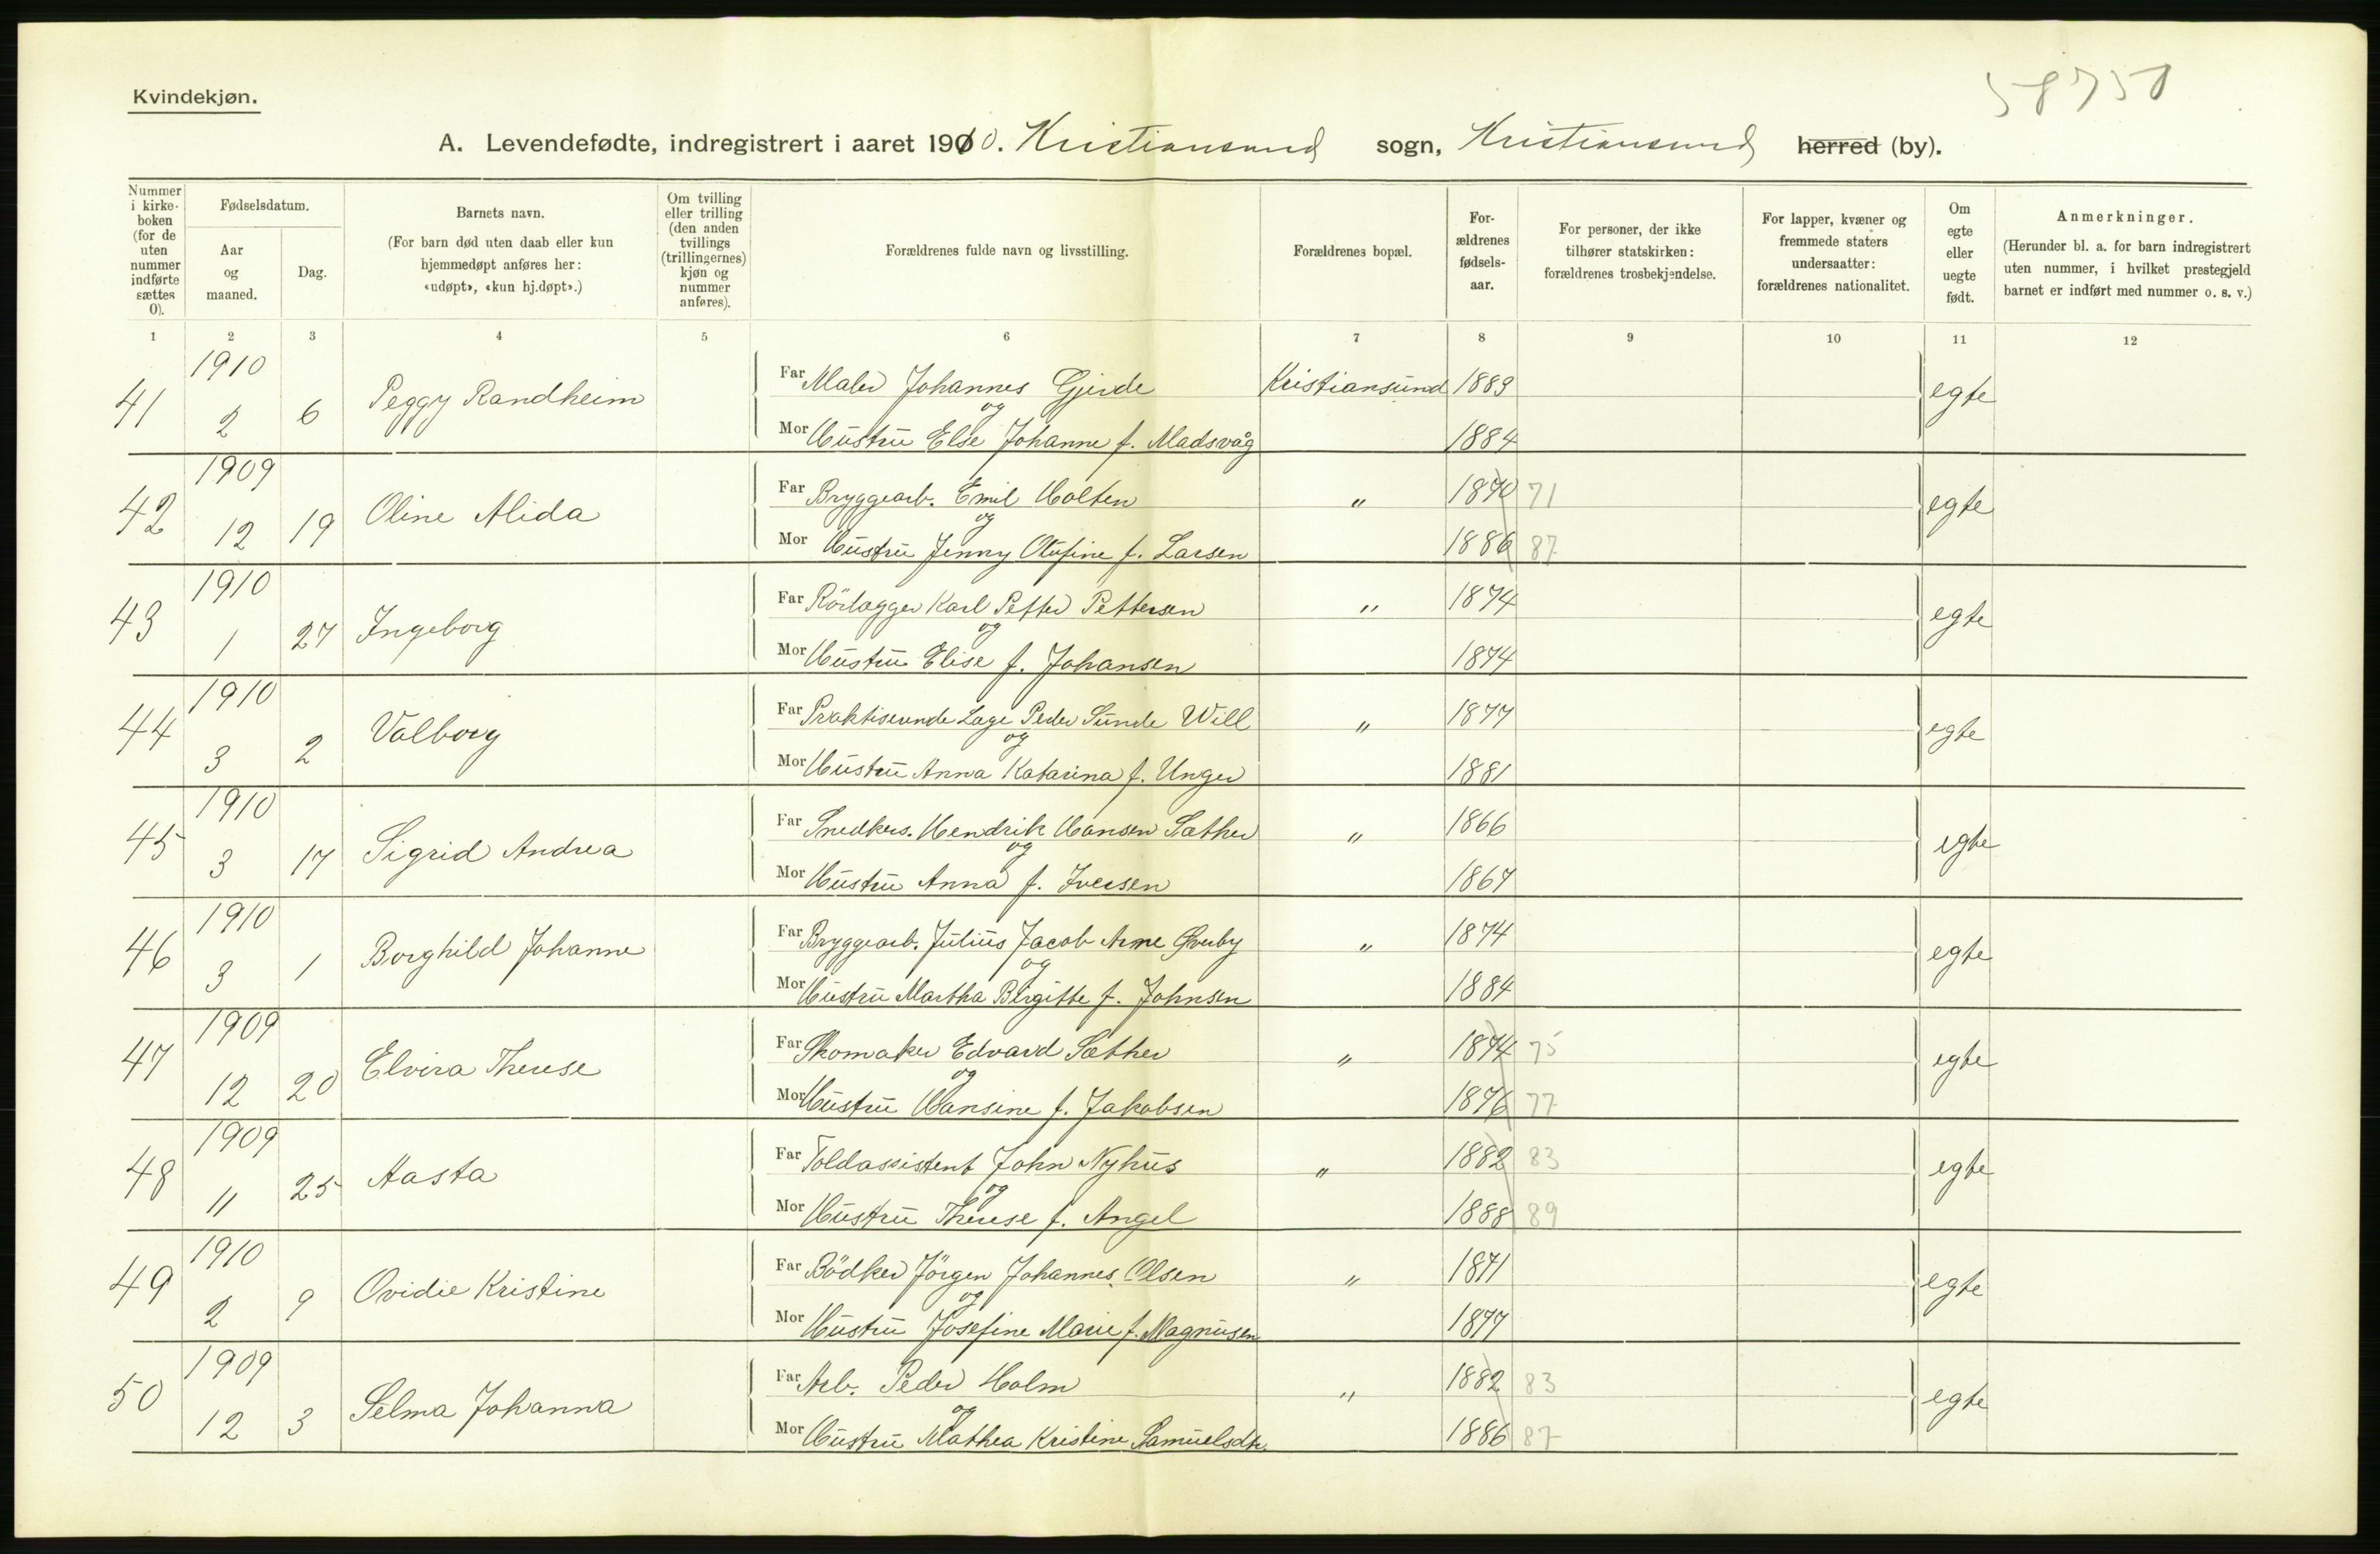 Kvindekjøn.
58750
A. Levendefødte, indregistrert i aaret 1910. Kristiansund sogn, Kristiansund herred (by).
Nummer i kirke-boken (for de uten nummer indførte sættes 0).
Fødselsdatum.
Aar og maaned.
Dag.
Barnets navn.
(For barn død uten daab eller kun hjemmedøpt anføres her: «udøpt», «kun hj.døpt».)
Om tvilling eller trilling (den anden tvillings (trillingernes) kjøn og nummer anføres).
Forældrenes fulde navn og livsstilling.
Forældrenes bopæl.
For-ældrenes fødsels-aar.
For personer, der ikke tilhører statskirken: forældrenes trosbekjendelse.
For lapper, kvæner og fremmede staters undersaatter: forældrenes nationalitet.
Om egte eller uegte født.
Anmerkninger.
(Herunder bl. a. for barn indregistrert uten nummer, i hvilket prestegjeld barnet er indført med nummer o. s. v.)
1 2 3 4 5 6 7 8 9 10 11 12
41 1910 2 6 Peggy Randheim
Far Maler Johannes Gjerde Kristiansund 1883 egte
og
Mor Hustru Else Johanne f. Madsvåg 1884
42 1909 12 19 Oline Alida
Far Bryggearb. Emil Holten " 1870 71 egte
og
Mor Hustru Jenny Olufine f. Larsen 1886 87
43 1910 1 27 Ingeborg
Far Rörlægger Karl Petter Pettersen " 1874 egte
og
Mor Hustru Elise f. Johansen 1874
44 1910 3 2 Valborg
Far Praktiserende Læge Peder Sunde Will " 1877 egte
og
Mor Hustru Anna Katarina f. Unger 1881
45 1910 3 17 Sigrid Andrea
Far Snedkers. Hendrik Hansen Sæther " 1866 egte
og
Mor Hustru Anna f. Iversen 1867
46 1910 3 1 Borghild Johanne
Far Bryggearb. Julius Jacob Arne Øverby " 1874 egte
og
Mor Hustru Martha Birgitte f. Johnsen 1884
47 1909 12 20 Elvira Therese
Far Skomaker Edvard Sæther " 1874 75 egte
og
Mor Hustru Hansine f. Jakobsen 1876 77
48 1909 11 25 Aasta
Far Toldassistent John Nyhus " 1882 83 egte
og
Mor Hustru Therese f. Angel 1888 89
49 1910 2 9 Ovidie Kristine
Far Bödker Jörgen Johannes Olsen " 1871 egte
og
Mor Hustru Josefine Marie f. Magnusen 1877
50 1909 12 3 Selma Johanna
Far Arb. Peder Holm " 1882 83 egte
og
Mor Hustru Mathea Kristine Samuelsdtr. 1886 87